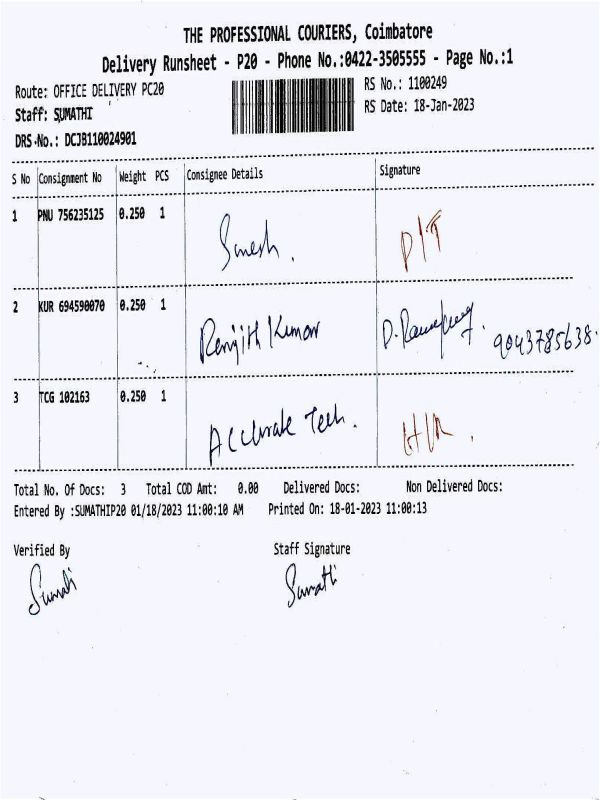 THE PROFESSIONAL COURIERS, Coimbatore
Delivery Runsheet - P20 - Phone No.:0422-3505555 - Page No.:1
Route: OFFICE DELIVERY PC20 RS No.: 1100249
Staff: SUMATHI RS Date: 18-Jan-2023
DRS No.: DCJB110024901
S No Consignment No Weight PCS Consignee Details Signature
1 PNU 756235125 0.250 1
2 KUR 694590070 0.250 1 Renjith Kumar 9043785638
3 TCG 102163 0.250 1 Accurate Tech.
Total No. Of Docs: 3 Total COD Amt: 0.00 Delivered Docs: Non Delivered Docs:
Entered By :SUMATHIP20 01/18/2023 11:00:10 AM Printed On: 18-01-2023 11:00:13
Verified By Staff Signature
Sumathi